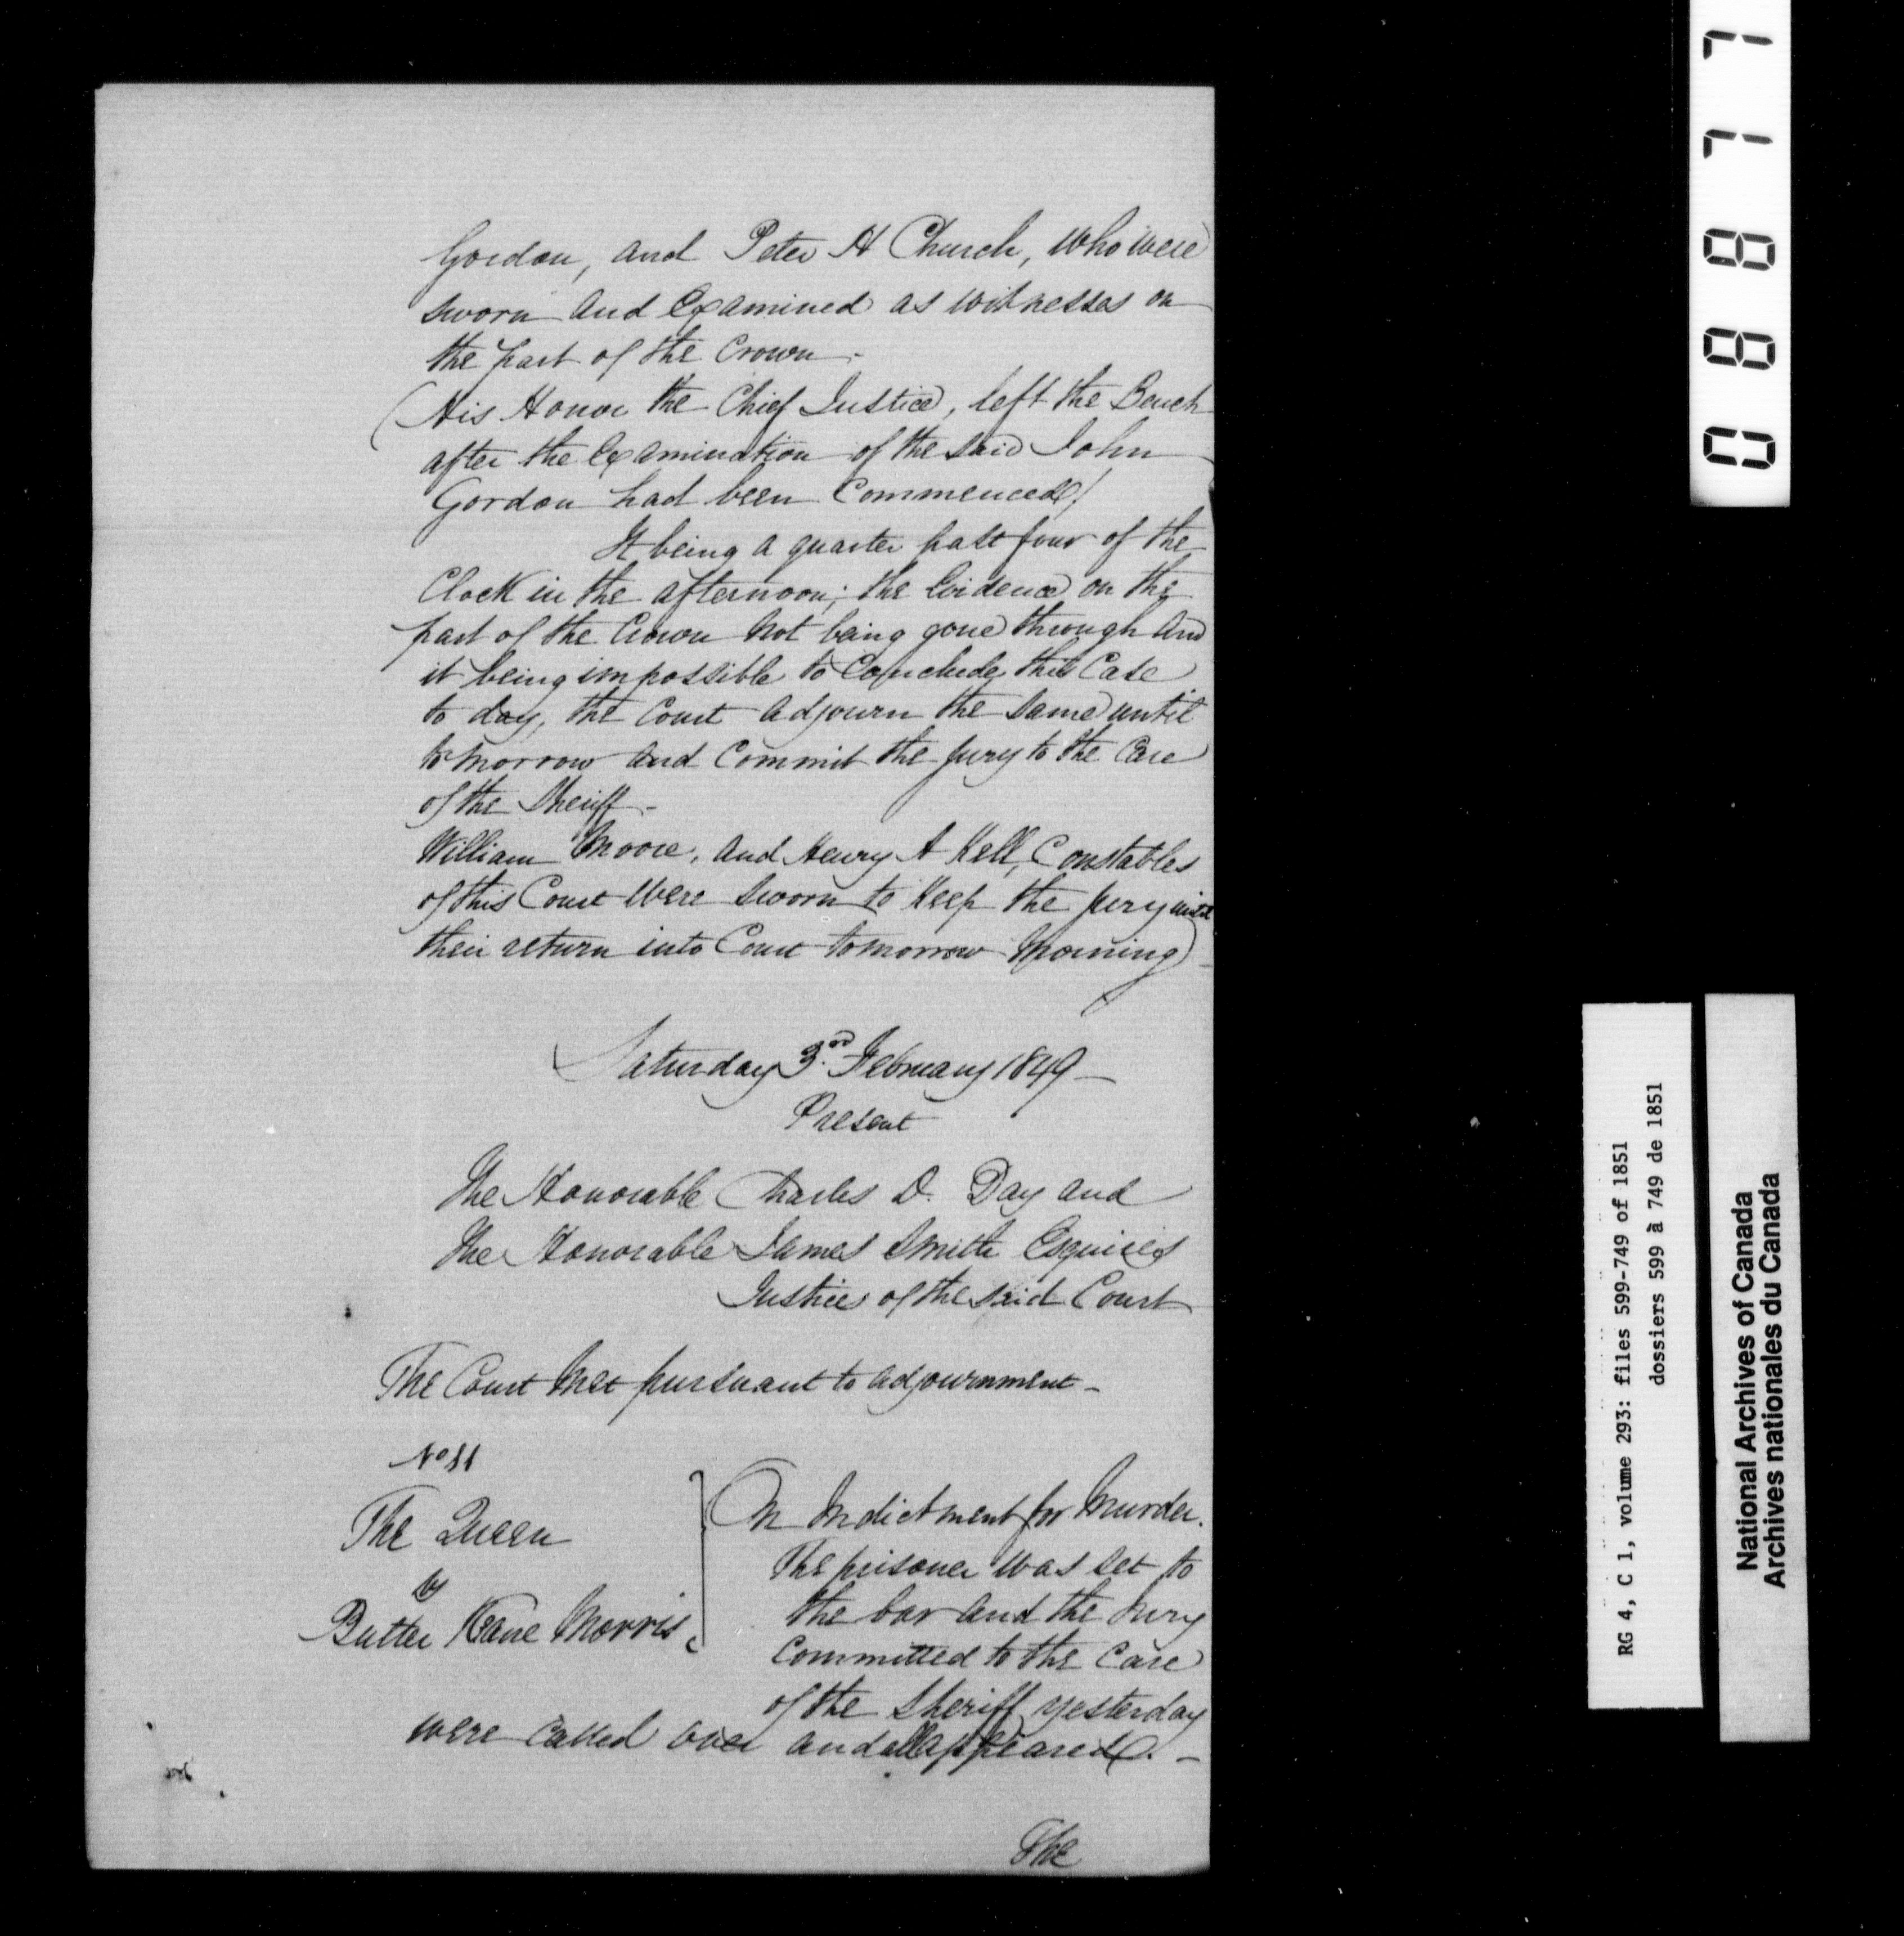 Gordon, and Peter H Church, who were
sworn and Examined as witnesses on
the part of the Crown -
(His Honor the Chief Justice, left the Bench
after the Examination of the said John
Gordon had been Commenced/
It being a quarter past four of the
Clock in the afternoon; the Evidence on the
part of the Crown not being gone through and
it being impossible to Conclude this Case
to day, the Court adjourn the same until
to morrow and Commit the jury to the Care
of the Sheriff -
William Moore, and Henry A Kell, Constables
of this Court were sworn to keep the jury until
their return into Court tomorrow Morning
Saturday 3rd February 1849 -
Present
The Honorable Charles D. Day and
The Honorable James Smith Esquires
Justices of the said Court
The Court met pursuant to adjournment -
No 11
The Queen
vs
Butler Kane Morris
On Indictment for Murder.
The prisoner was set to
the bar and the Jury
Committed to the Care
of the Sheriff yesterday
were Called over and all appeared. -
The
08877
RG 4, C 1, volume 293: files 599-749 of 1851
dossiers 599 à 749 de 1851
National Archives of Canada
Archives nationales du Canada